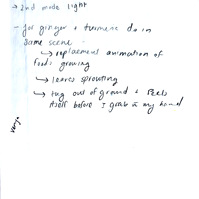 → 2nd mode light
- for ginger & turmeric do in
same scene -
↳ replacement animation of
food growing
↳ leaves sprouting
↳ tug out of ground & peels
itself before I grab in my hand